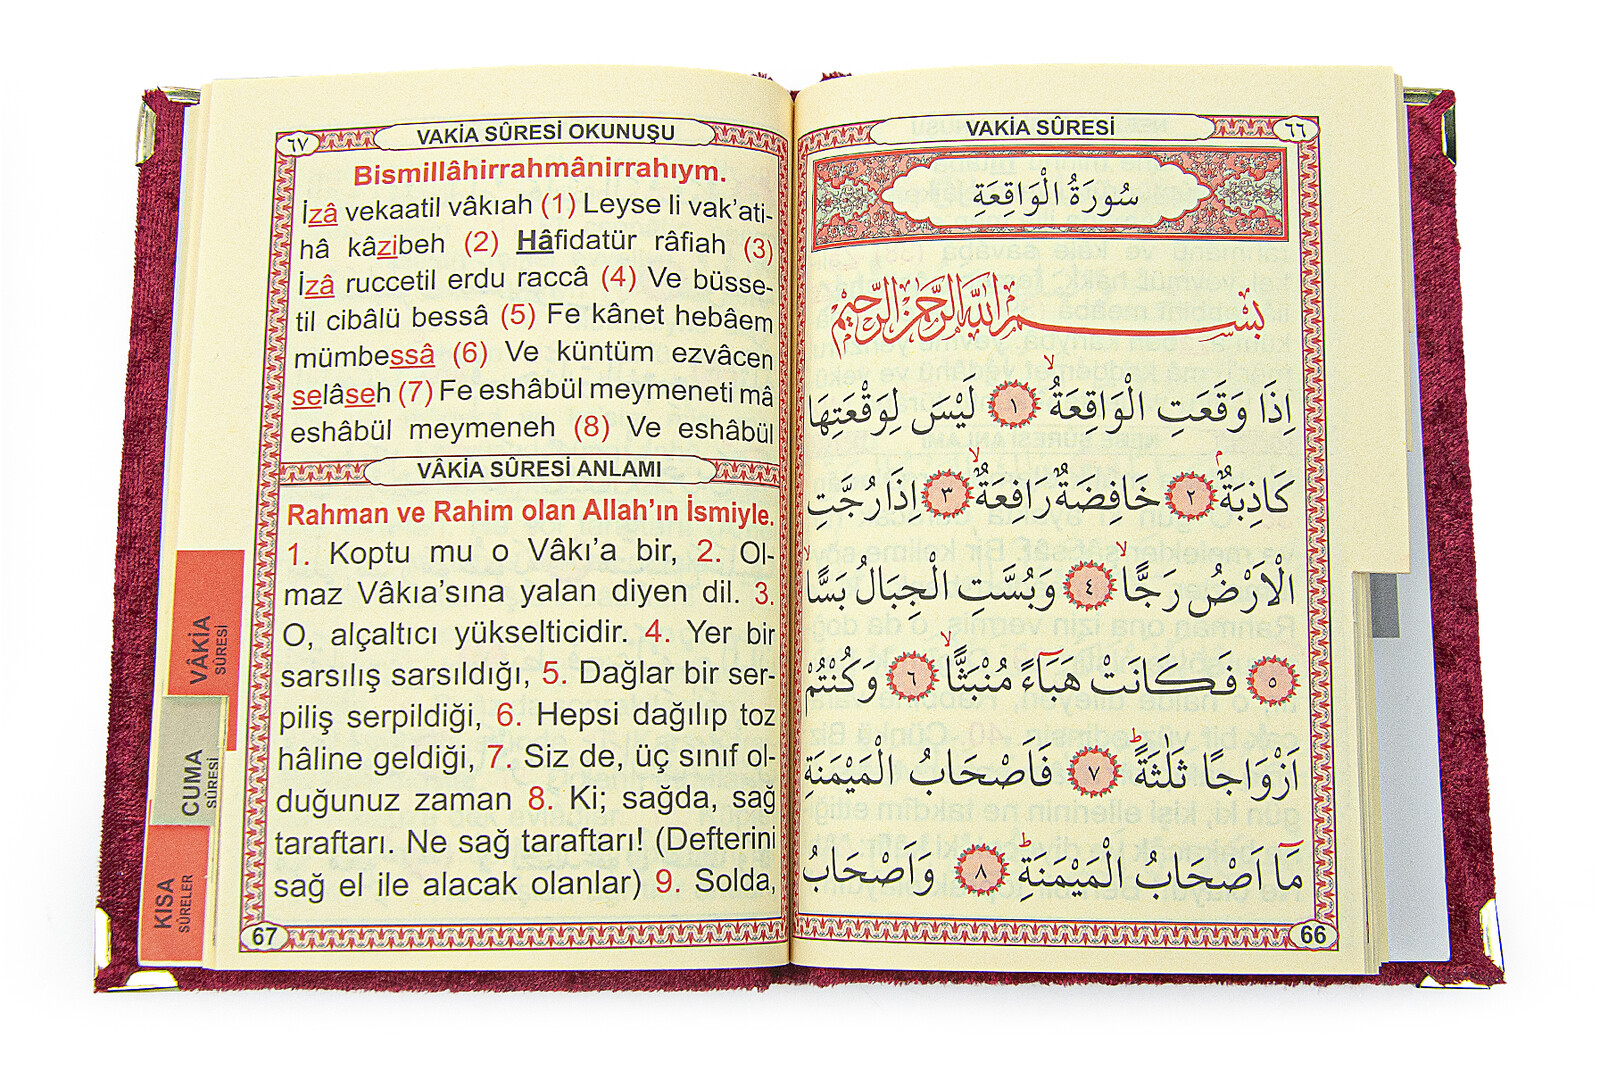 VAKİA SÛRESİ
٦٦
سُورَةُ الْوَاقِعَةِ
بِسْمِ اللّٰهِ الرَّحْمٰنِ الرَّحِيمِ
اِذَا وَقَعَتِ الْوَاقِعَةُۙ ﴿١﴾ لَيْسَ لِوَقْعَتِهَا
كَاذِبَةٌۢ ﴿٢﴾ خَافِضَةٌ رَافِعَةٌۙ ﴿٣﴾ اِذَا رُجَّتِ
الْاَرْضُ رَجًّاۙ ﴿٤﴾ وَبُسَّتِ الْجِبَالُ بَسًّاۙ
﴿٥﴾ فَكَانَتْ هَبَٓاءً مُنْبَثًّاۙ ﴿٦﴾ وَكُنْتُمْ
اَزْوَاجًا ثَلٰثَةًۜ ﴿٧﴾ فَاَصْحَابُ الْمَيْمَنَةِ
مَٓا اَصْحَابُ الْمَيْمَنَةِۜ ﴿٨﴾ وَاَصْحَابُ
66
٦٧
VAKİA SÛRESİ OKUNUŞU
Bismillâhirrahmânirrahıym.
İzâ vekaatil vâkıah (1) Leyse li vak'ati-
hâ kâzibeh (2) Hâfidatür râfiah (3)
İzâ ruccetil erdu raccâ (4) Ve büsse-
til cibâlü bessâ (5) Fe kânet hebâem
mümbessâ (6) Ve küntüm ezvâcen
selâseh (7) Fe eshâbül meymeneti mâ
eshâbül meymeneh (8) Ve eshâbül
VÂKİA SÛRESİ ANLAMI
Rahman ve Rahim olan Allah'ın İsmiyle.
1. Koptu mu o Vâkı'a bir, 2. Ol-
maz Vâkıa'sına yalan diyen dil. 3.
O, alçaltıcı yükselticidir. 4. Yer bir
sarsılış sarsıldığı, 5. Dağlar bir ser-
piliş serpildiği, 6. Hepsi dağılıp toz
hâline geldiği, 7. Siz de, üç sınıf ol-
duğunuz zaman 8. Ki; sağda, sağ
taraftarı. Ne sağ taraftarı! (Defterini
sağ el ile alacak olanlar) 9. Solda,
67
VÂKİA
SÛRESİ
CUMA
SÛRESİ
KISA
SÛRELER